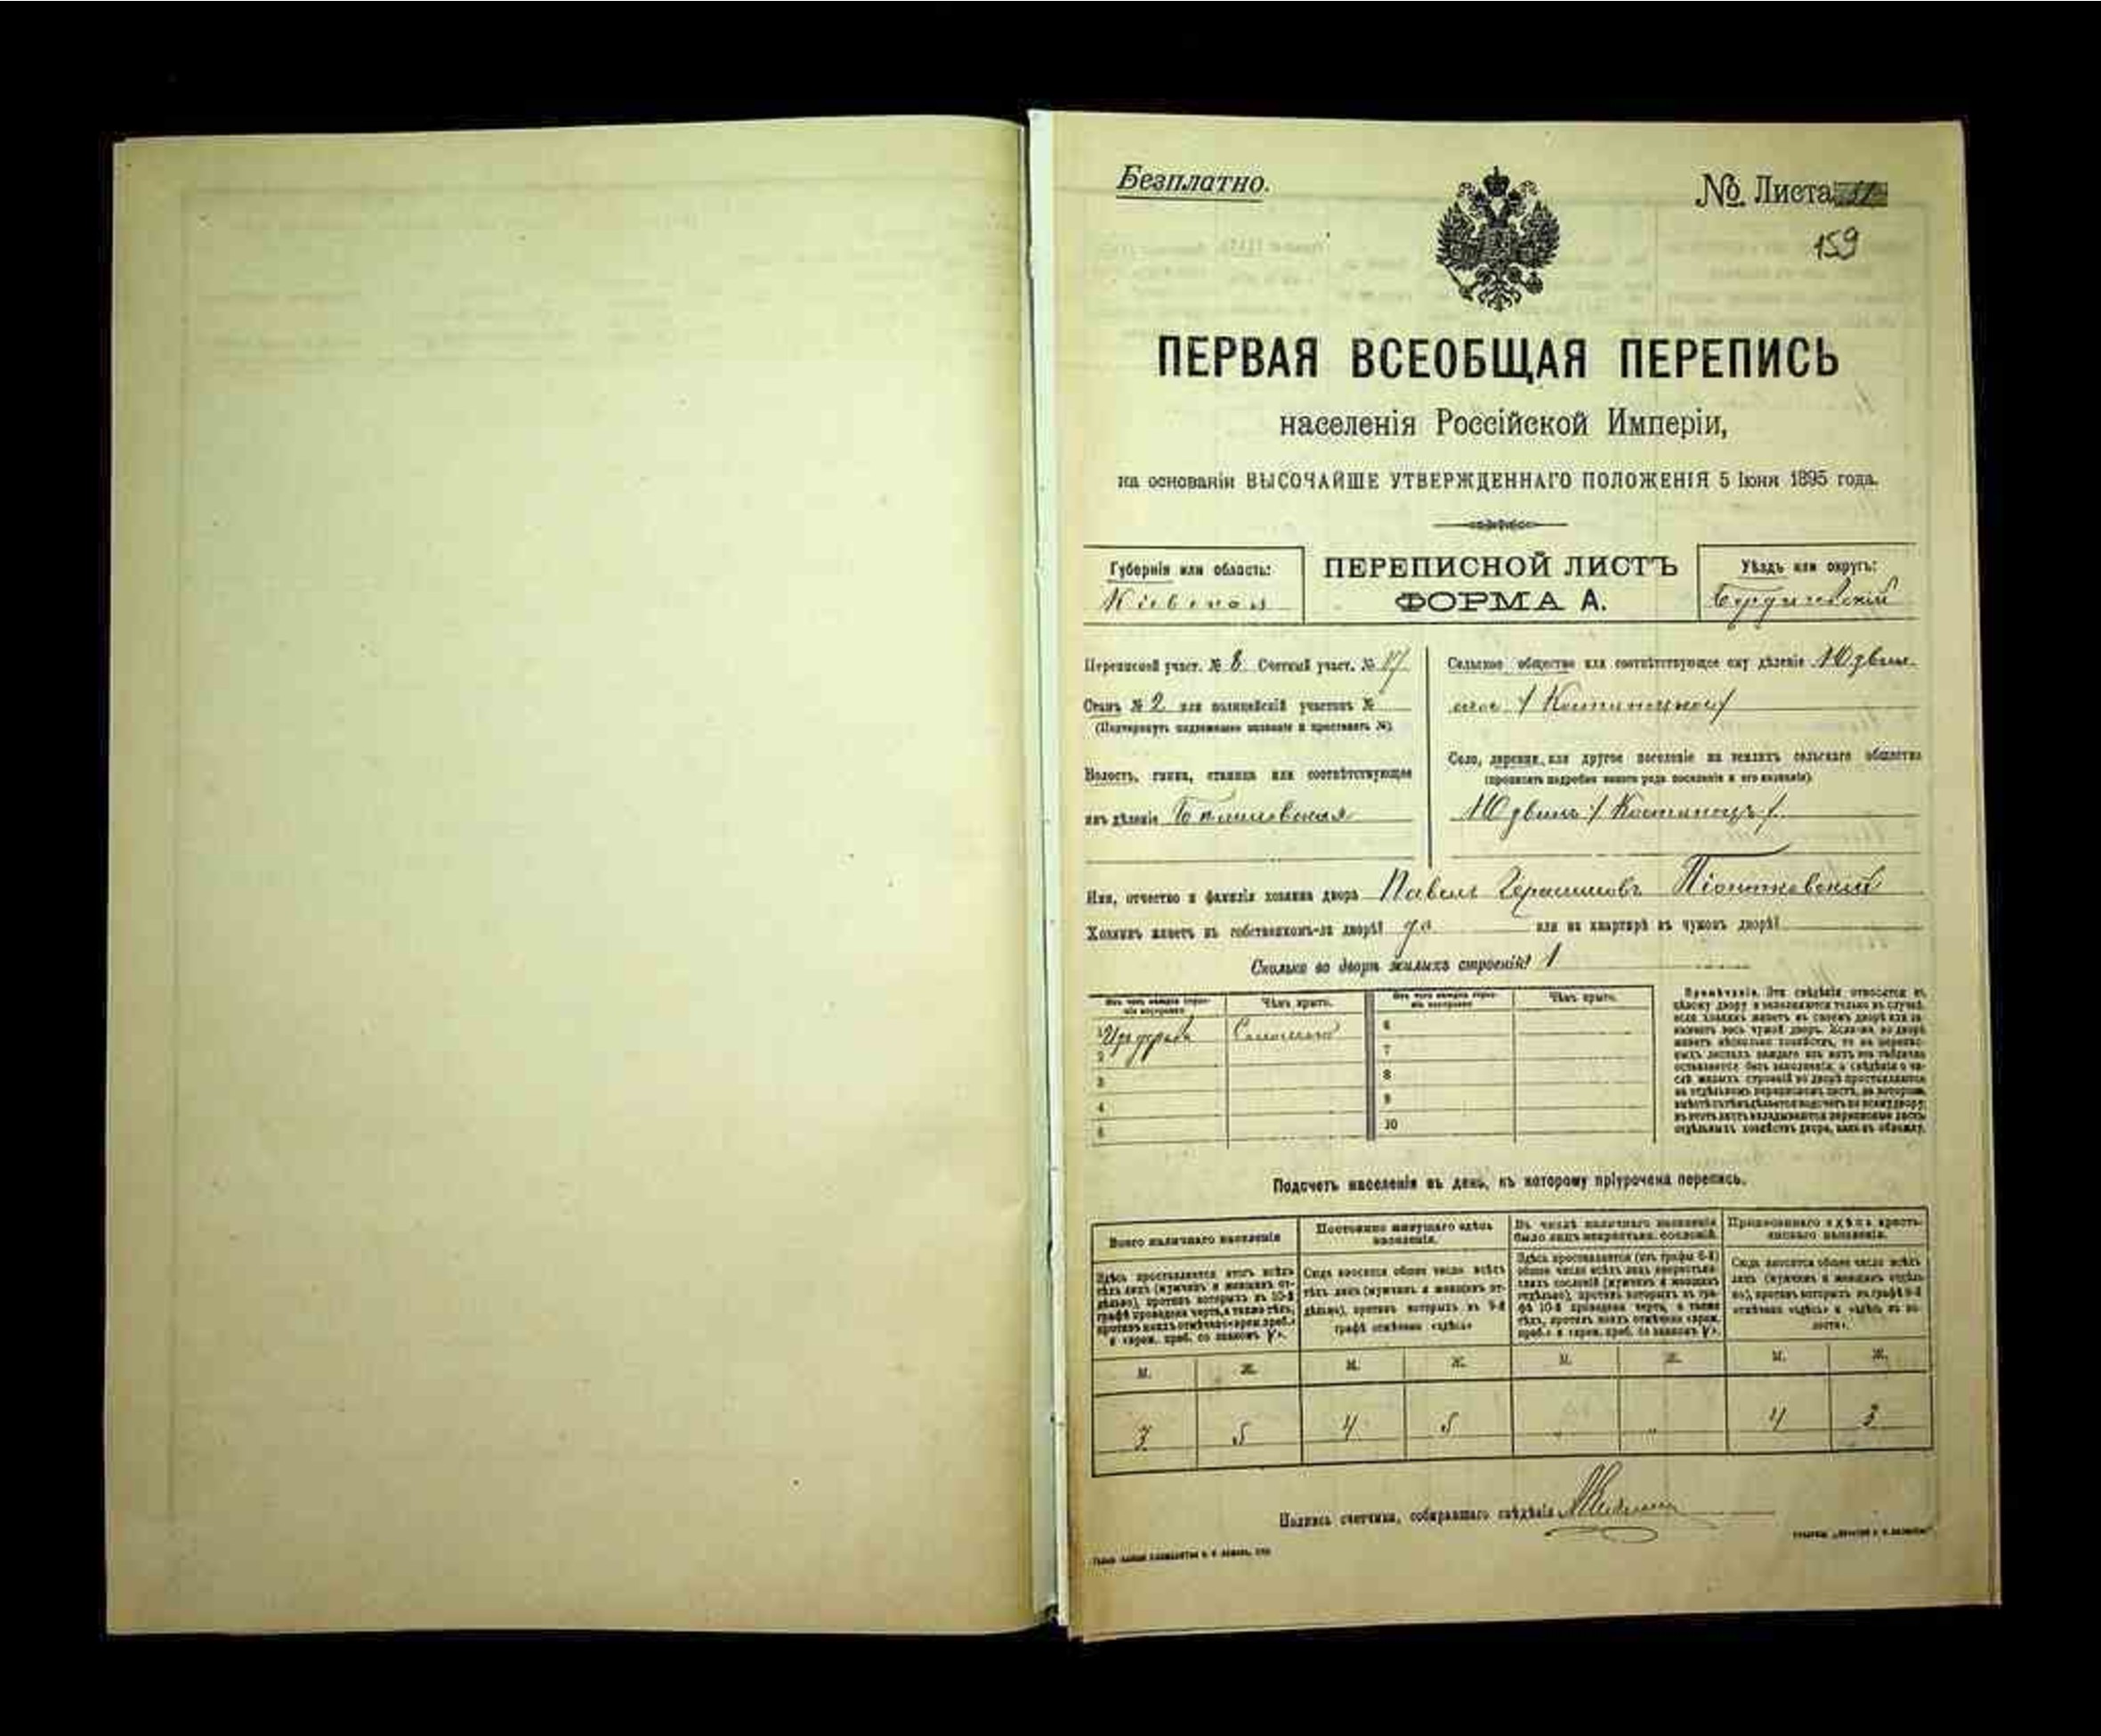 Безплатно.
№ Листа
159
ПЕРВАЯ ВСЕОБЩАЯ ПЕРЕПИСЬ
населенія Россійской Имперіи,
на основаніи ВЫСОЧАЙШЕ УТВЕРЖДЕННАГО ПОЛОЖЕНІЯ 5 Іюня 1895 года.
Губернія или область:
Кіевская
ПЕРЕПИСНОЙ ЛИСТЪ
ФОРМА А.
Уѣздъ или округъ:
Бердичевскій
Переписной участ. № 8 Счетный участ. № 17
Станъ № 2 или полицейскій участокъ №
(Подчеркнуть надлежащее названіе и проставить №)
Волость, гмина, станица или соотвѣтствующее
имъ дѣленіе
Сельское общество или соотвѣтствующее ему дѣленіе
Село, деревня или другое поселеніе на земляхъ сельскаго общества
(прописать подробно какого рода поселеніе и его названіе)
Имя, отчество и фамилія хозяина двора Павелъ Герасимовъ Піонтковскій
Хозяинъ живетъ въ собственномъ-ли дворѣ? да или на квартирѣ въ чужомъ дворѣ?
Сколько во дворѣ жилыхъ строеній? 1
Изъ чего каждое строеніе построено
Чѣмъ крыто.
Изъ чего каждое строеніе построено
Чѣмъ крыто.
1 Изъ дерева Соломой
2
3
4
5
6
7
8
9
10
Примѣчаніе. Эти свѣдѣнія относятся къ
цѣлому двору и заполняются только въ случаѣ,
если хозяинъ живетъ въ своемъ дворѣ или за-
нимаетъ весь чужой дворъ. Если-же во дворѣ
живетъ нѣсколько хозяйствъ, то на перепис-
ныхъ листахъ каждаго изъ нихъ эта табличка
оставляется безъ заполненія, а свѣдѣнія о чи-
слѣ жилыхъ строеній во дворѣ проставляются
на отдѣльномъ переписномъ листѣ, на которомъ
вмѣстѣ съ тѣмъ дѣлается подсчетъ по всему двору;
въ этотъ листъ вкладываются переписные листы
отдѣльныхъ хозяйствъ двора, какъ въ обложку.
Подсчетъ населенія въ день, къ которому пріурочена перепись.
Всего наличнаго населенія
Постоянно живущаго здѣсь населенія.
Въ числѣ наличнаго населенія было лицъ некрестьянс. сословій.
Приписаннаго здѣсь крестьянскаго населенія.
Здѣсь проставляется итогъ всѣхъ
тѣхъ лицъ (мужчинъ и женщинъ от-
дѣльно), противъ которыхъ въ 10-й
графѣ проведена черта, а также тѣхъ,
противъ коихъ отмѣчено «врем. преб.»
и «врем. преб. со знакомъ V».
Сюда вносится общее число всѣхъ
тѣхъ лицъ (мужчинъ и женщинъ от-
дѣльно), противъ которыхъ въ 9-й
графѣ отмѣчено «здѣсь»
Здѣсь проставляется (изъ графы 6-й)
общее число всѣхъ лицъ некрестьян-
скихъ сословій (мужчинъ и женщинъ
отдѣльно), противъ которыхъ въ гра-
фѣ 10-й проведена черта, а также
тѣхъ, противъ коихъ отмѣчено «врем.
преб.» и «врем. преб. со знакомъ V».
Сюда вносится общее число всѣхъ
лицъ (мужчинъ и женщинъ отдѣль-
но), противъ которыхъ въ графѣ 8-й
отмѣчено «здѣсь» и «здѣсь въ во-
лости».
М. Ж. М. Ж. М. Ж. М. Ж.
3 5 4 5 „ „ 4 3
Подпись счетчика, собиравшаго свѣдѣнія